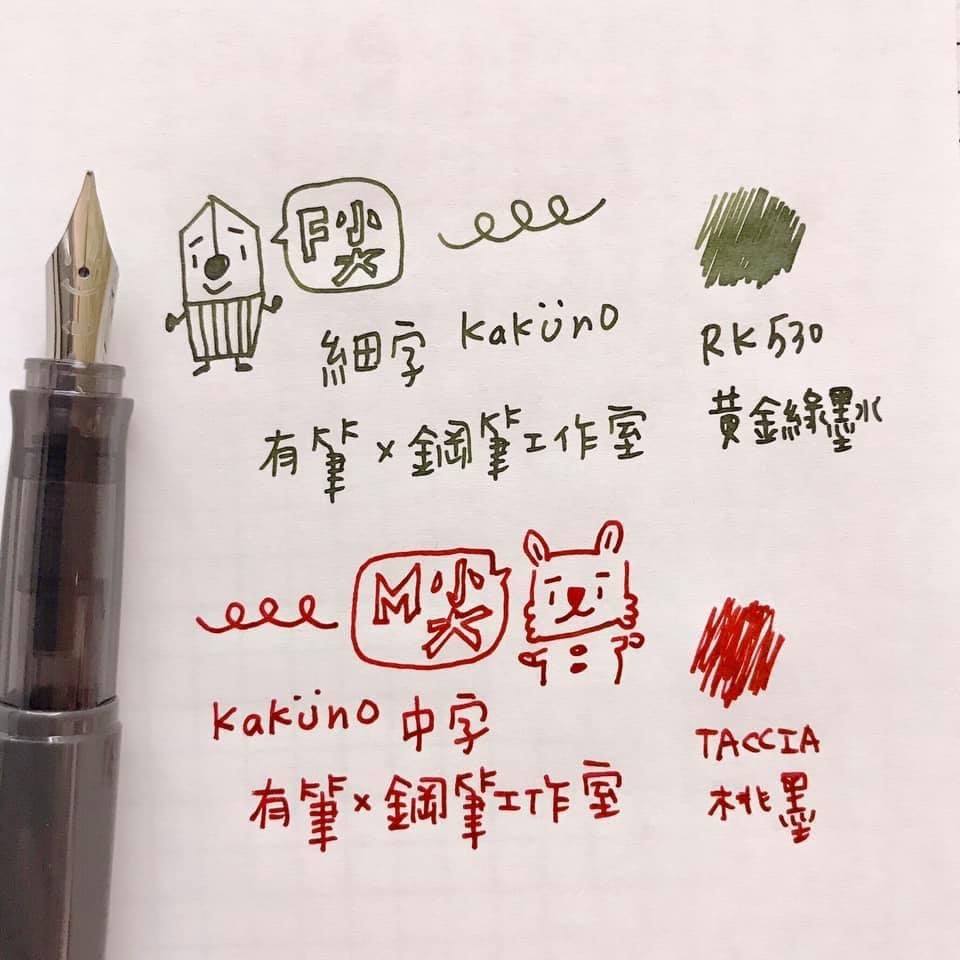 F尖
細字 Kaküno
有筆×鋼筆工作室
RK530
黃金綠墨水
M尖
Kaküno 中字
有筆×鋼筆工作室
TACCIA
桃墨